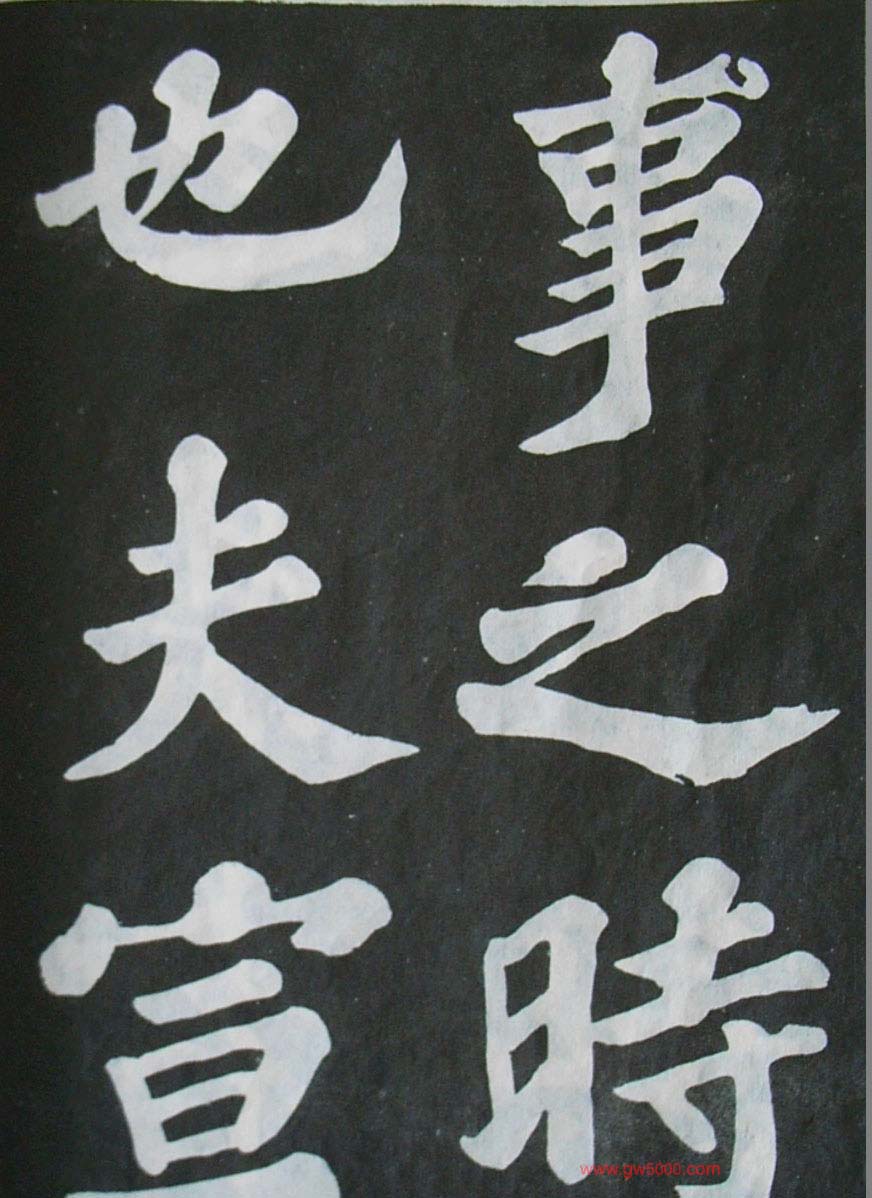 事之時
也夫宣
www.gw5000.com